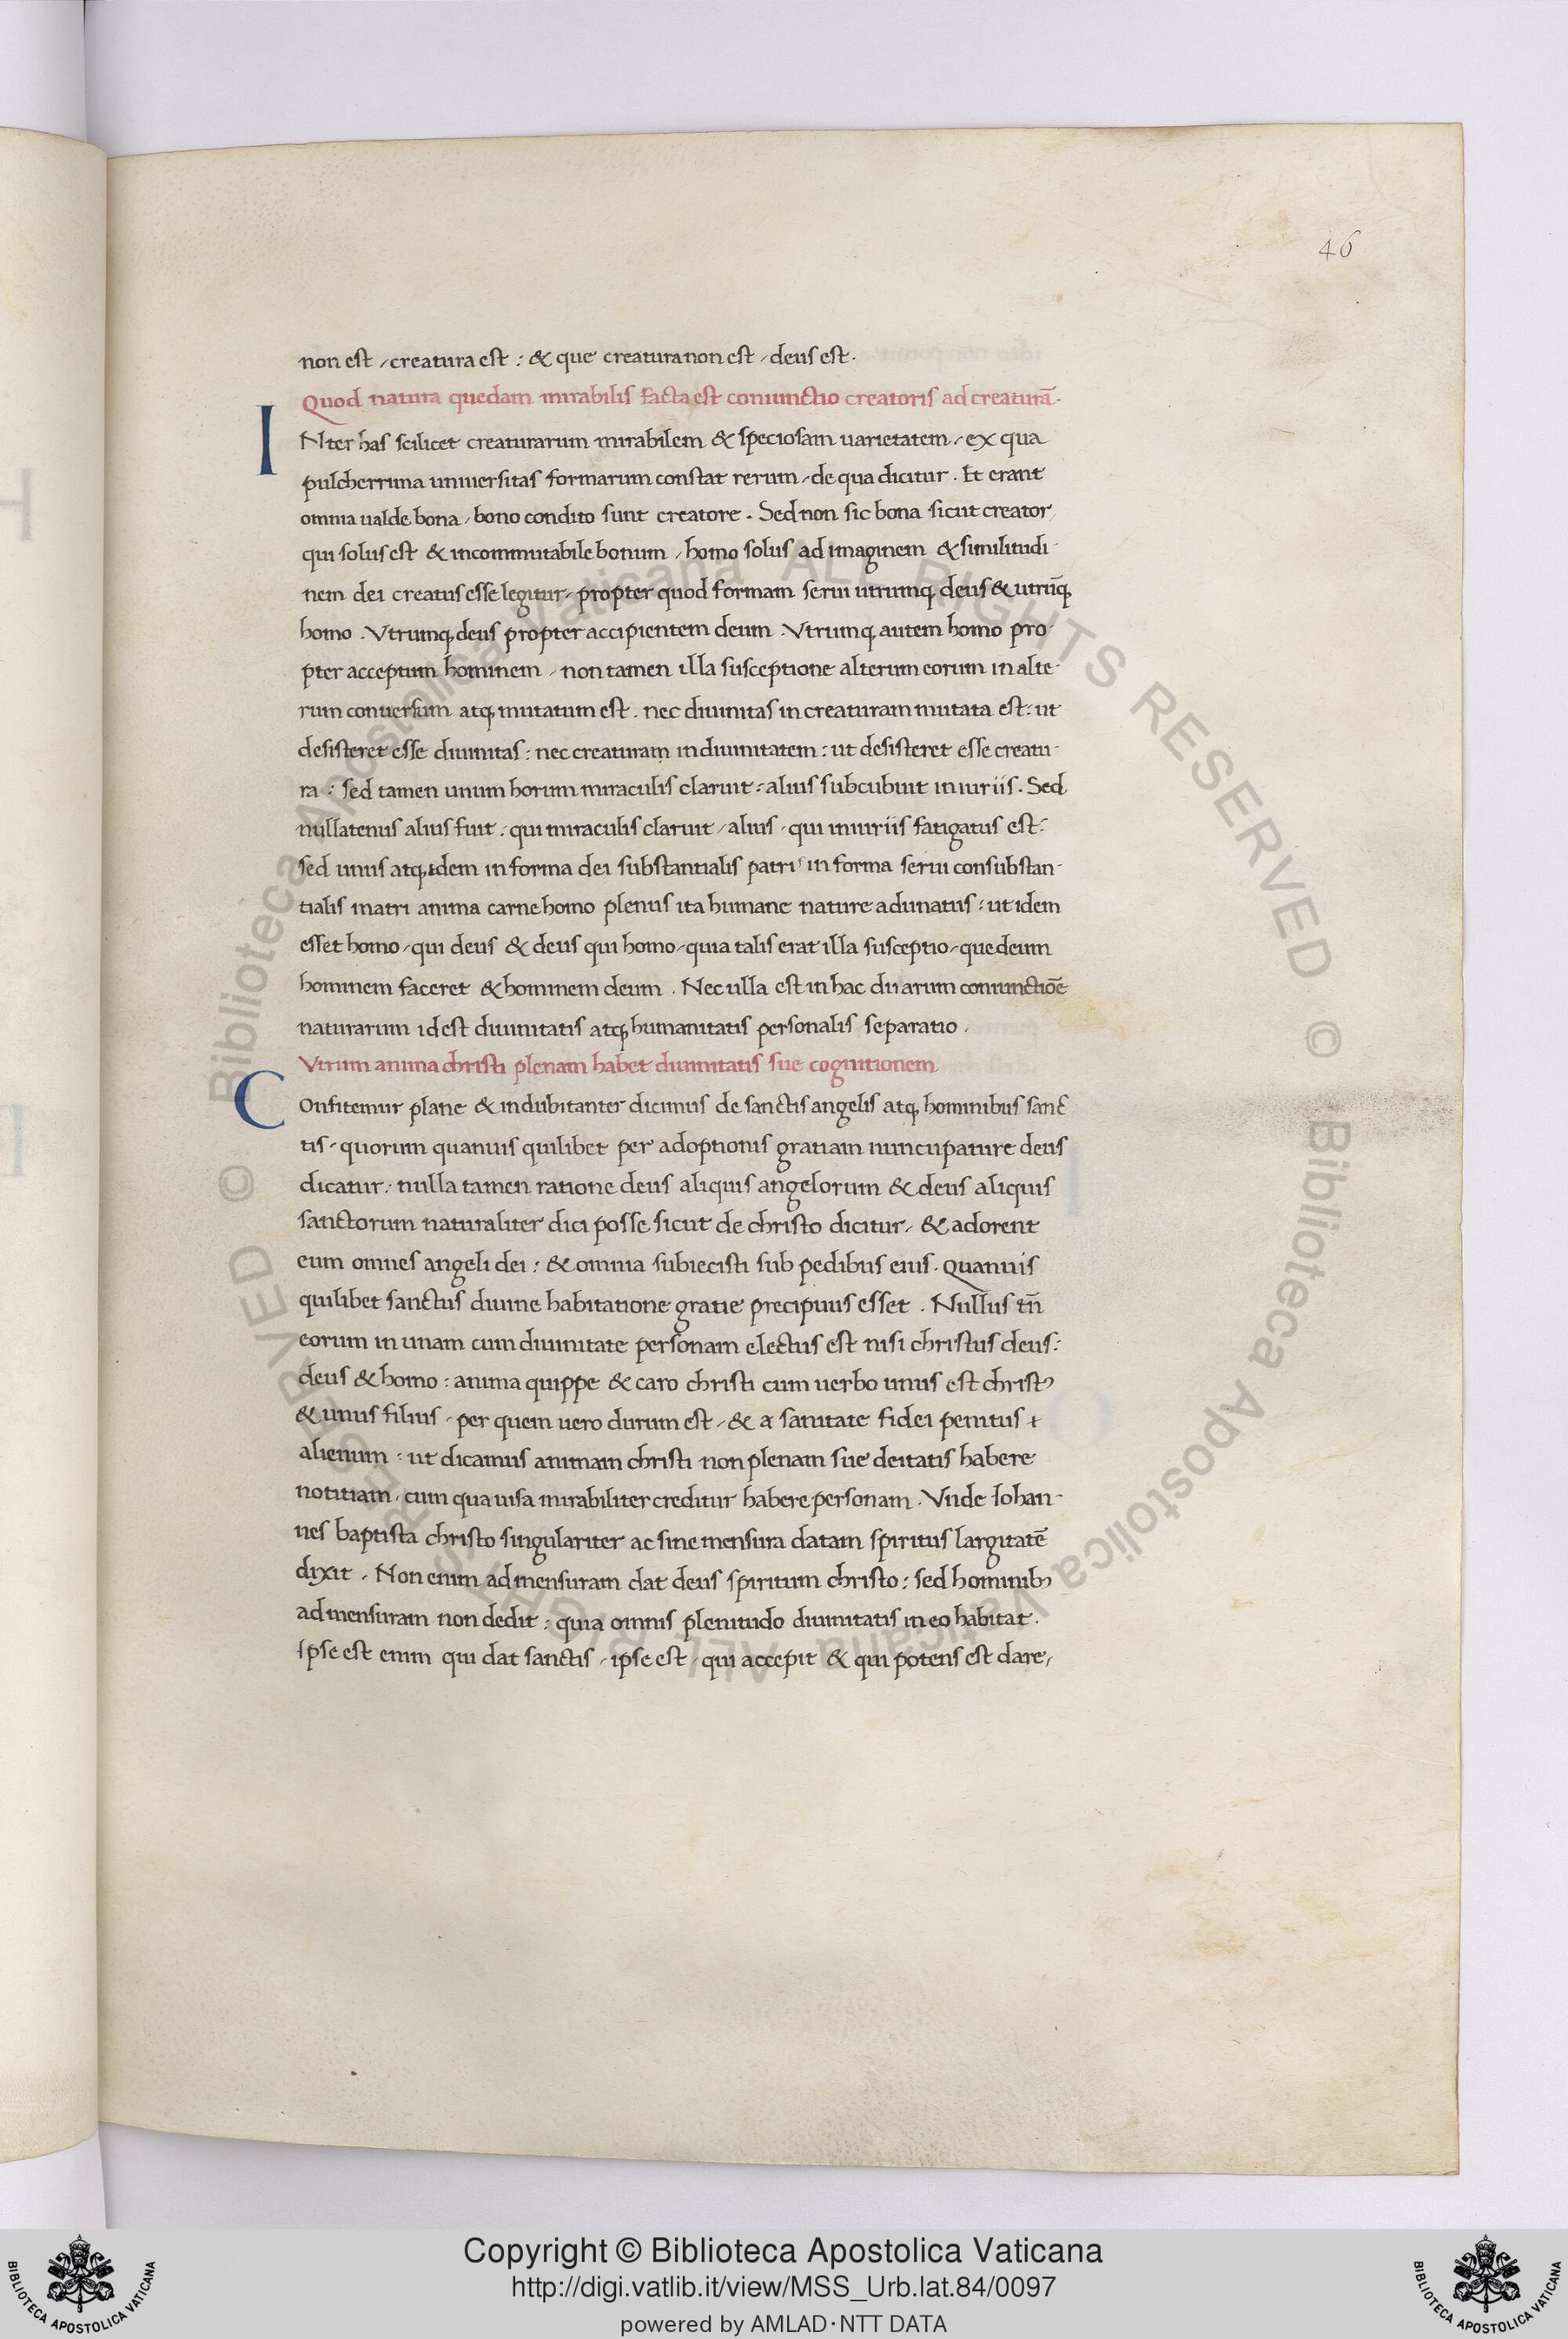 46
non est, creatura est: & que creatura non est, deus est.
Quod natura quedam mirabilis facta est coniunctio creatoris ad creaturā.
INter has scilicet creaturarum mirabilem & speciosam uarietatem, ex qua
pulcherrima uniuersitas formarum constat rerum, de qua dicitur. Et erant
omnia ualde bona, bono condito sunt creatore. Sed non sic bona sicut creator,
qui solus est & incommutabile bonum, homo solus ad imaginem & similitudi-
nem dei creatus esse legitur, propter quod formam serui utrumq; deus & utrūq;
homo. Vtrumq; deus propter accipientem deum. Vtrumq; autem homo pro-
pter acceptum hominem, non tamen illa susceptione alterum eorum in alte-
rum conuersum atq; mutatum est. nec diuinitas in creaturam mutata est: ut
desisteret esse diuinitas: nec creaturam in diuinitatem: ut desisteret esse creatu-
ra: sed tamen unum horum miraculis claruit: alius subcubuit iniuriis. Sed
nullatenus alius fuit, qui miraculis claruit, alius, qui iniuriis fatigatus est:
sed unus atq; idem in forma dei substantialis patri in forma serui consubstan-
tialis matri anima carne homo plenus ita humane nature adunatus: ut idem
esset homo, qui deus & deus qui homo, quia talis erat illa susceptio, que deum
hominem faceret & hominem deum. Nec ulla est in hac duarum coniunctiōe
naturarum id est diuinitatis atq; humanitatis personalis separatio.
Vtrum anima christi plenam habet diuinitatis sue cognitionem.
COnfitemur plane & indubitanter dicimus de sanctis angelis atq; hominibus sanc
tis, quorum quanuis quilibet per adoptionis gratiam nuncupature deus
dicatur: nulla tamen ratione deus aliquis angelorum & deus aliquis
sanctorum naturaliter dici posse sicut de christo dicitur, & adorent
eum omnes angeli dei: & omnia subiecisti sub pedibus eius. Quanuis
quilibet sanctus diuine habitatione gratie precipuus esset. Nullus tn̄
eorum in unam cum diuinitate personam electus est nisi christus deus:
deus & homo: anima quippe & caro christi cum uerbo unus est christꝰ
& unus filius, per quem uero durum est, & a sanitate fidei penitus +
alienum: ut dicamus animam christi non plenam sue deitatis habere
notitiam, cum qua uisa mirabiliter creditur habere personam. Vnde Iohan-
nes baptista christo singulariter ac sine mensura datam spiritus largitatē
dixit. Non enim ad mensuram dat deus spiritum christo: sed hominibꝰ
ad mensuram non dedit: quia omnis plenitudo diuinitatis in eo habitat.
Ipse est enim qui dat sanctis, ipse est, qui accepit & qui potens est dare,
Copyright © Biblioteca Apostolica Vaticana
http://digi.vatlib.it/view/MSS_Urb.lat.84/0097
powered by AMLAD·NTT DATA
BIBLIOTECA APOSTOLICA VATICANA
BIBLIOTECA APOSTOLICA VATICANA
© Biblioteca Apostolica Vaticana ALL RIGHTS RESERVED
© Biblioteca Apostolica Vaticana ALL RIGHTS RESERVED